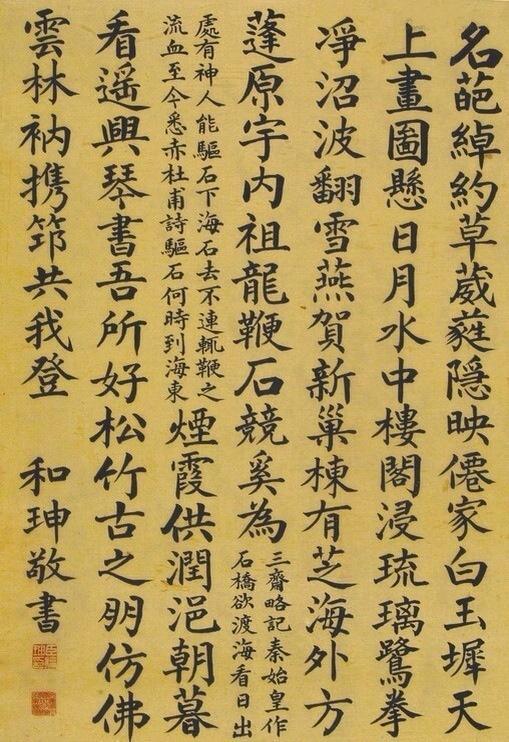 名葩綽約草葳蕤隱映僊家白玉墀天
上畫圖懸日月水中樓閣浸琉璃鷺拳
凈沼波翻雪燕賀新巢棟有芝海外方
蓬原宇内祖龍鞭石競奚為
三齋略記秦始皇作
石橋欲渡海看日出
處有神人能驅石下海石去不連輒鞭之
流血至今悉赤杜甫詩驅石何時到海東
煙霞供潤浥朝暮
看遥興琴書吾所好松竹古之朋仿佛
雲林衲携筇共我登
和珅敬書